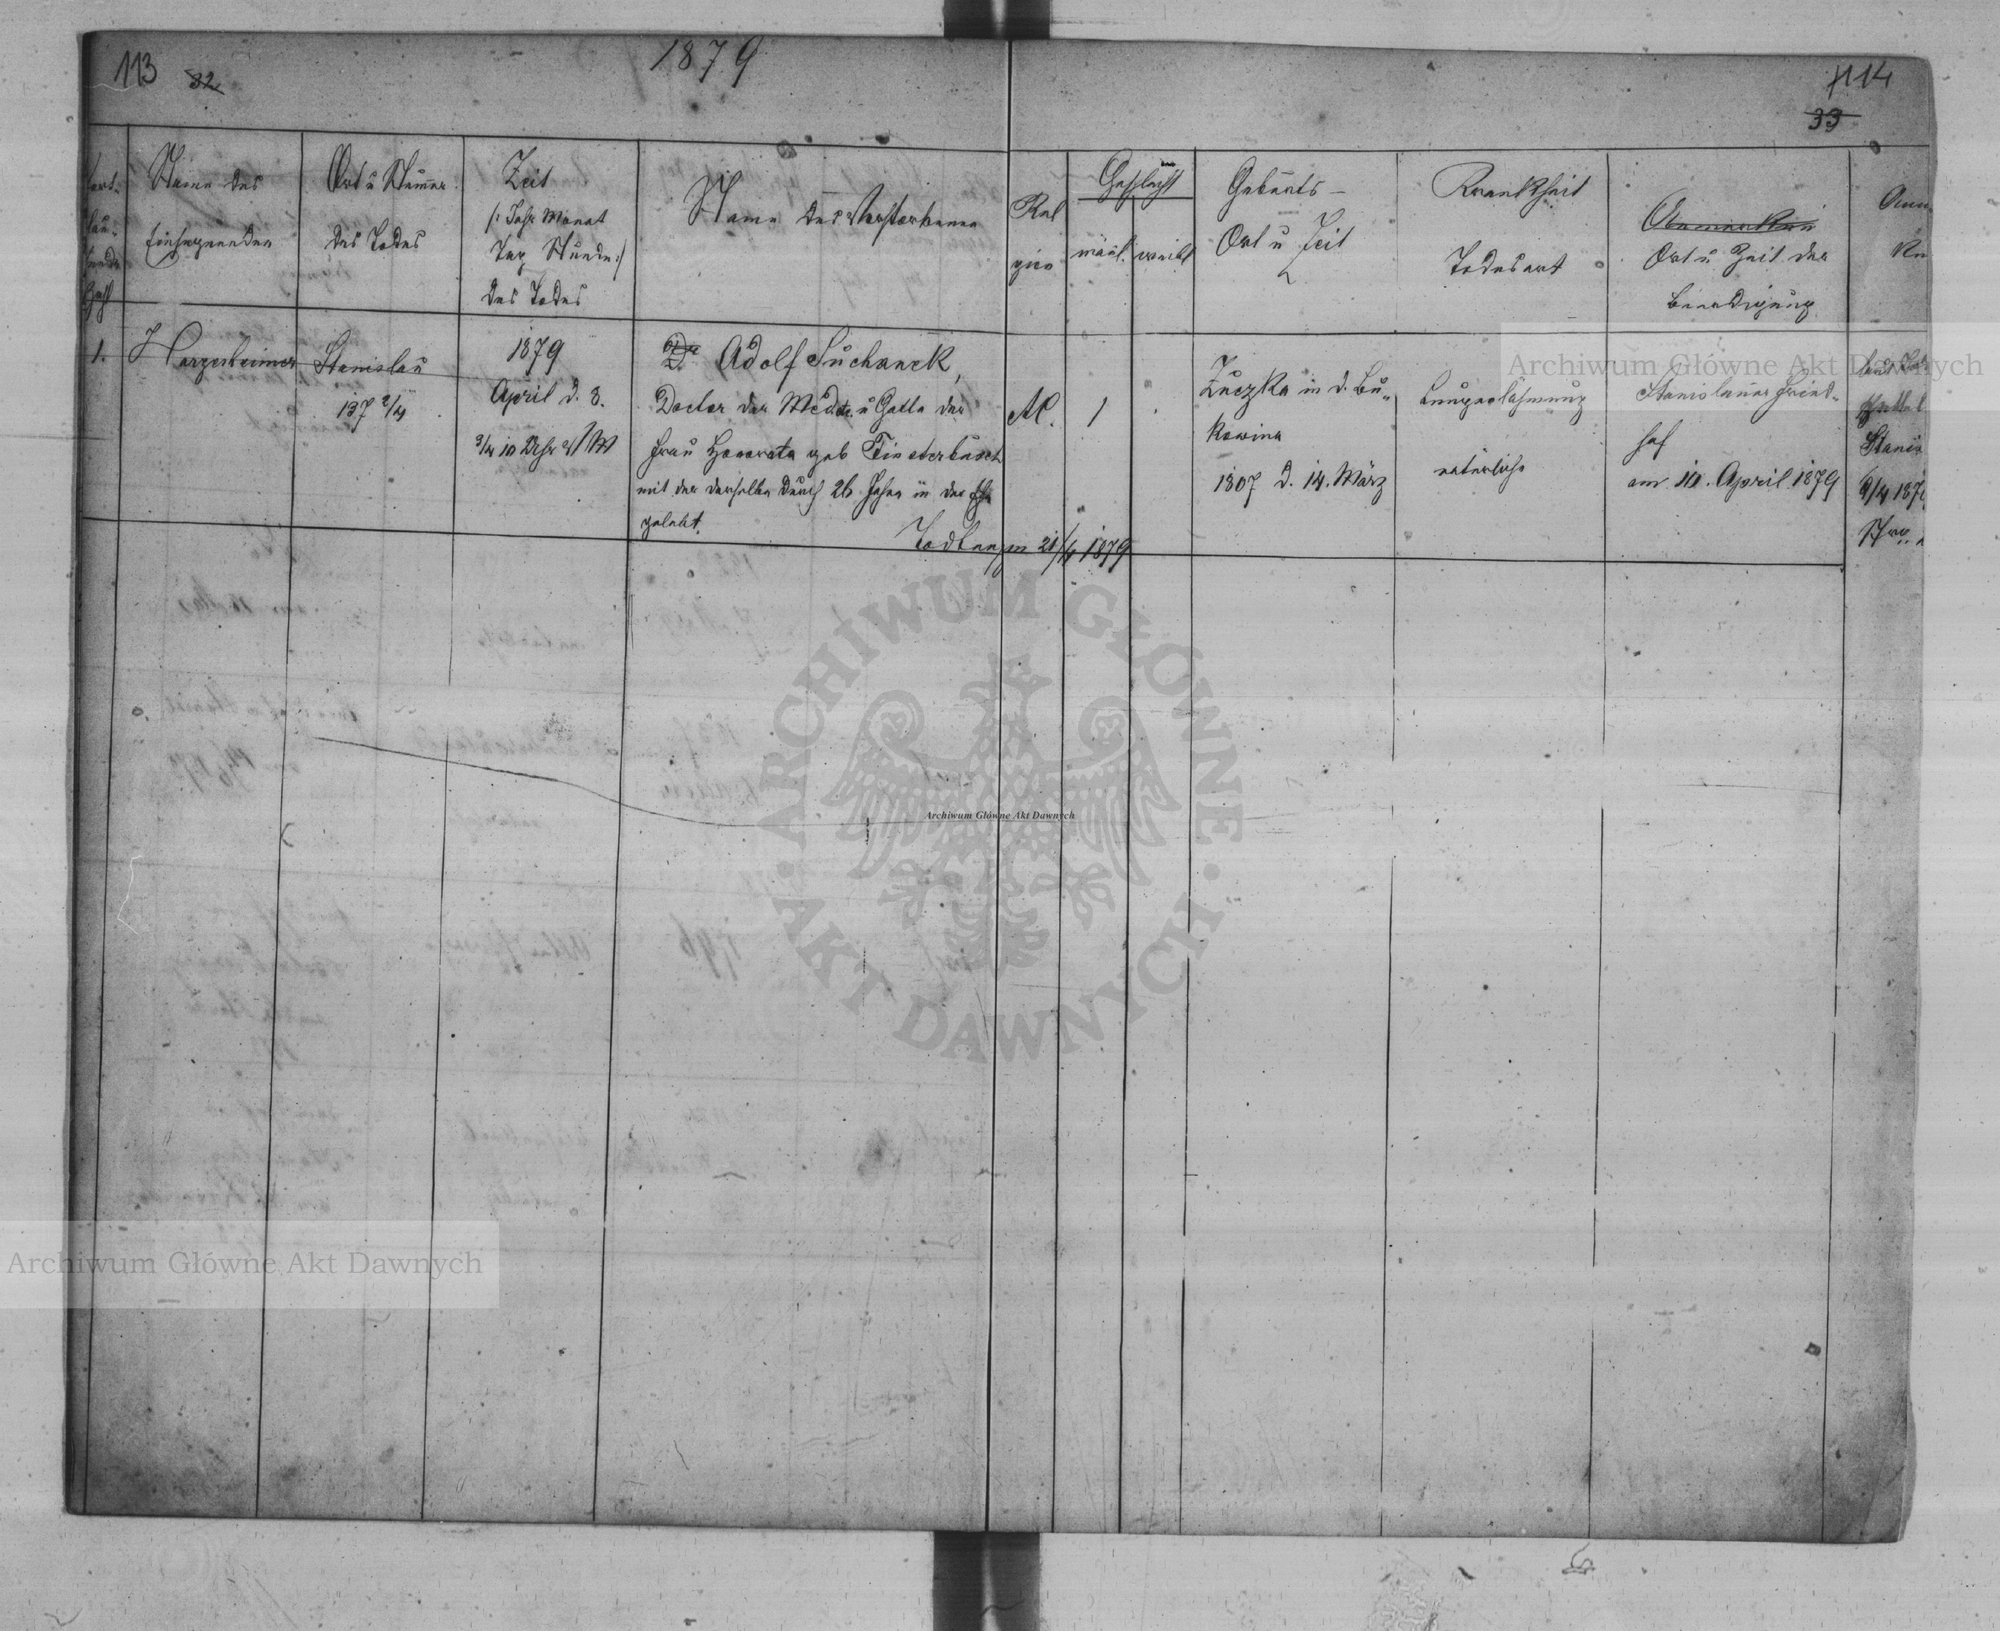 113 32
1879
114
33
Fort-
lau-
fende
Zahl
Name des
Einsegnenden
Ort u Numer
des Todes
Zeit
/: Jahr Monat
Tag Stunde :/
des Todes
Name des Verstorbenen
Reli
gion
Geschlecht
mänl. weibl
Geburts-
Ort u Zeit
Krankheit
Todesart
Ort u Zeit der
Beerdigung
Anm
1.
Harzesheimer
Stanislau
137 2/4
1879
April d. 8.
3/4 10 Uhr V/M
Adolf Suchanek,
Doctor der Med. u Gatte der
Frau Honorata geb Finsterbusch
mit der derselbe durch 26 Jahre in der Ehe
gelebt.
Todtenz 21/4 1879
1
Zuczka in d. Bu-
kowina
1807 d. 14. März
Lungenlähmung
natürlich
Stanislauer Fried-
hof
am 10. April 1879
Stanis
Archiwum Główne Akt Dawnych
ARCHIWUM GŁÓWNE AKT DAWNYCH
Archiwum Główne Akt Dawnych
Archiwum Główne Akt Dawnych